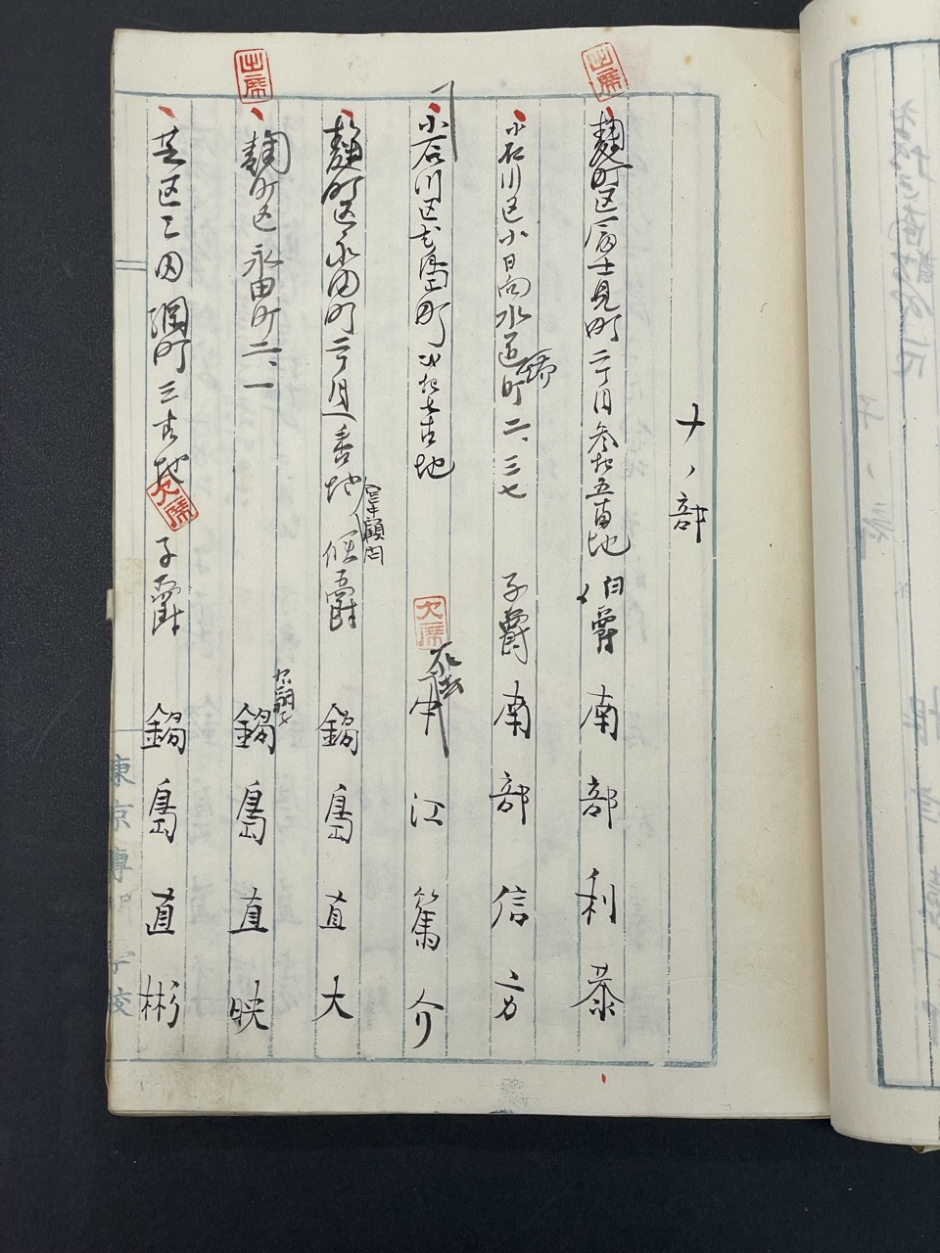 ナノ部
出席
麹町区富士見町二丁目参拾五番地 伯爵 南部利恭
小石川区小日向水道町二、三七 子爵 南部信方
小石川区
町
番地
欠席
死去
中江篤介
麹町区永田町二丁目
番地 侯爵 鍋島直大
宮中顧問
出席
麹町区永田町二、一
鍋島直映
芝区三田綱町三番地
欠席
子爵 鍋島直彬
東京専門学校